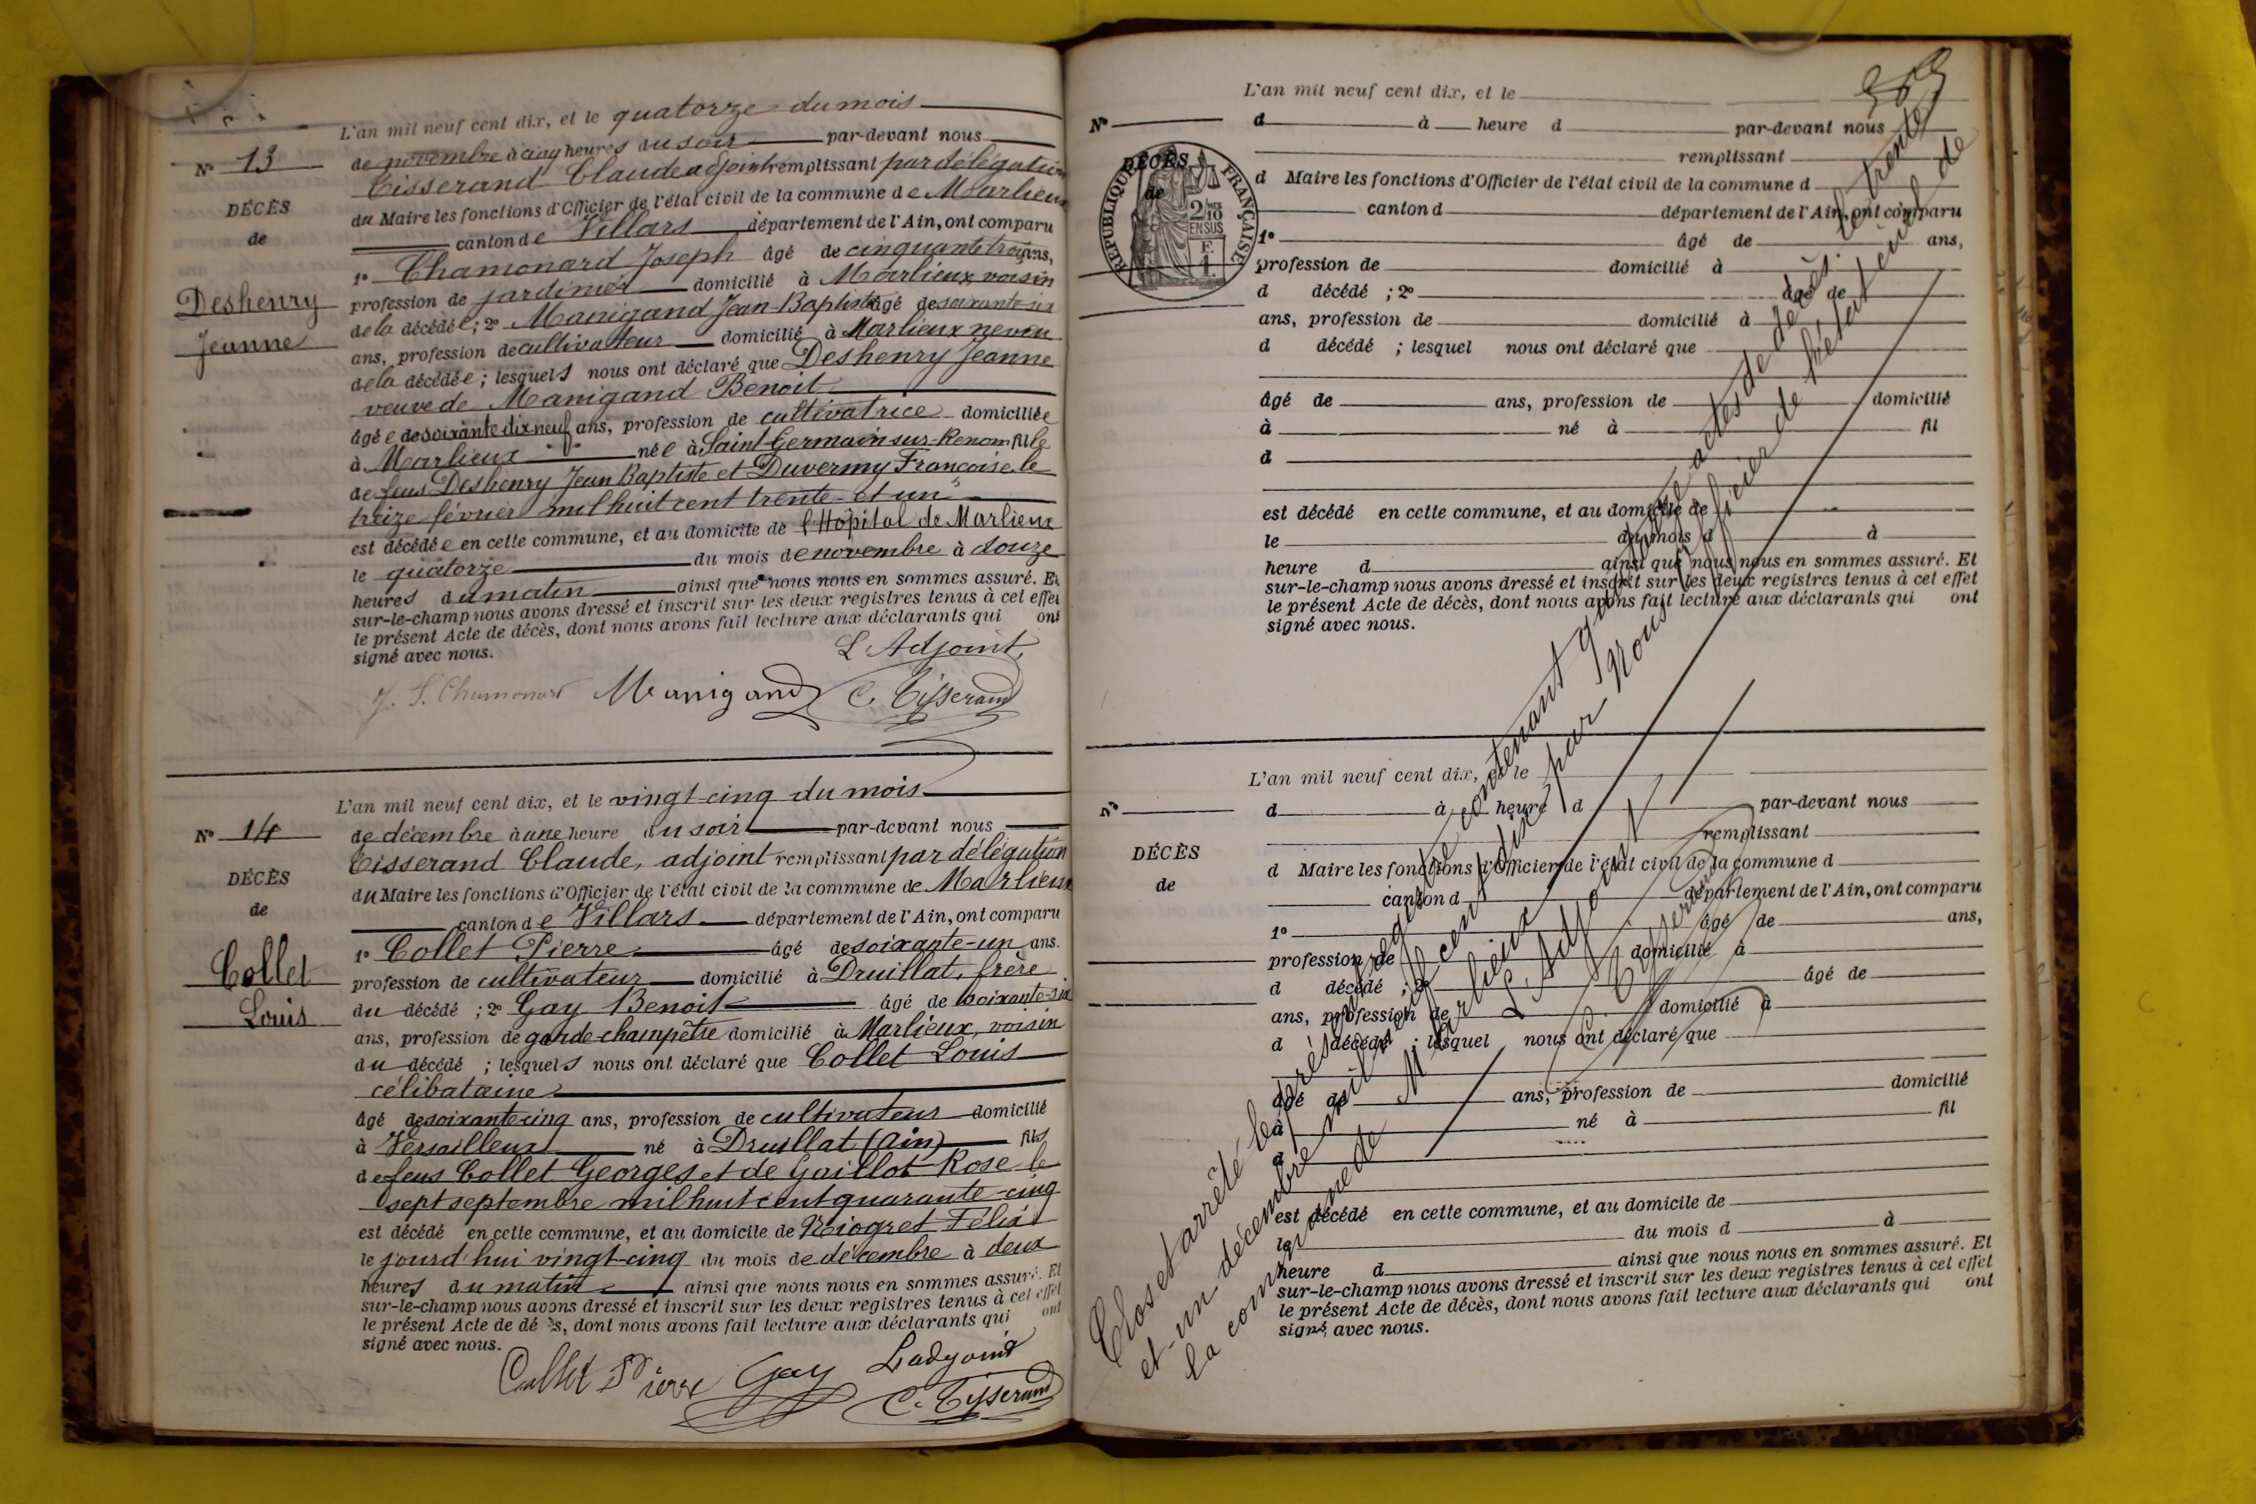 L'an mil neuf cent dix, et le quatorze du mois
N° 13
de novembre à cinq heures du soir par-devant nous
Tisserand Claude adjoint remplissant par délégation
DÉCÈS
du Maire les fonctions d'Officier de l'état civil de la commune de Marlieux
de
canton de Villars département de l'Ain, ont comparu
1° Chamonard Joseph âgé de cinquante trois ans,
Deshenry
profession de jardinier domicilié à Marlieux, voisin
de la décédée ; 2° Manigand Jean Baptiste âgé de soixante-six
Jeanne
ans, profession de cultivateur domicilié à Marlieux neveu
de la décédée ; lesquels nous ont déclaré que Deshenry Jeanne
veuve de Manigand Benoit
âgée de soixante dix neuf ans, profession de cultivatrice domiciliée
à Marlieux née à Saint Germain-sur-Renom fille
de feus Deshenry Jean Baptiste et Duvermy Françoise le
treize février mil huit cent trente-et-un
est décédée en cette commune, et au domicile de l'Hôpital de Marlieux
le quatorze du mois de novembre à douze
heures du matin ainsi que nous nous en sommes assuré. Et
sur-le-champ nous avons dressé et inscrit sur les deux registres tenus à cet effet
le présent Acte de décès, dont nous avons fait lecture aux déclarants qui ont
signé avec nous.
L'Adjoint,
J. Chamonard Manigand C. Tisserand
L'an mil neuf cent dix, et le vingt-cinq du mois
N° 14
de décembre à une heure du soir par-devant nous
Tisserand Claude, adjoint remplissant par délégation
DÉCÈS
du Maire les fonctions d'Officier de l'état civil de la commune de Marlieux
de
canton de Villars département de l'Ain, ont comparu
1° Collet Pierre âgé de soixante-un ans.
Collet
profession de cultivateur domicilié à Druillat, frère
Louis
du décédé ; 2° Gay Benoit âgé de soixante-six
ans, profession de garde-champêtre domicilié à Marlieux, voisin
du décédé ; lesquels nous ont déclaré que Collet Louis
célibataire
âgé de soixante-cinq ans, profession de cultivateur domicilié
à Versailleux né à Druillat (ain) fils
de feus Collet Georges et de Gaillot Rose le
sept septembre mil huit cent quarante-cinq
est décédé en cette commune, et au domicile de Niogret Félix
le jourd'hui vingt-cinq du mois de décembre à deux
heures du matin ainsi que nous nous en sommes assuré. Et
sur-le-champ nous avons dressé et inscrit sur les deux registres tenus à cet effet
le présent Acte de décès, dont nous avons fait lecture aux déclarants qui ont
signé avec nous.
L'adjoint
Collet Pierre Gay C. Tisserand
L'an mil neuf cent dix, et le
N°
d à heure d par-devant nous
remplissant
DÉCÈS
de
RÉPUBLIQUE FRANÇAISE
2/10 EN SUS
F. 1.
d Maire les fonctions d'Officier de l'état civil de la commune d
canton d département de l'Ain, ont comparu
1° âgé de ans,
profession de domicilié à
d décédé ; 2° âgé de
ans, profession de domicilié à
d décédé ; lesquel nous ont déclaré que
âgé de ans, profession de domicilié
à né à fil
d
est décédé en cette commune, et au domicile de
le du mois d à
heure d ainsi que nous nous en sommes assuré. Et
sur-le-champ nous avons dressé et inscrit sur les deux registres tenus à cet effet
le présent Acte de décès, dont nous avons fait lecture aux déclarants qui ont
signé avec nous.
L'an mil neuf cent dix, et le
N°
d à heure d par-devant nous
remplissant
DÉCÈS
de
d Maire les fonctions d'Officier de l'état civil de la commune d
canton d département de l'Ain, ont comparu
1° âgé de ans,
profession de domicilié à
d décédé ; 2° âgé de
ans, profession de domicilié à
d décédé ; lesquel nous ont déclaré que
âgé de ans, profession de domicilié
à né à fil
d
est décédé en cette commune, et au domicile de
le du mois d à
heure d ainsi que nous nous en sommes assuré. Et
sur-le-champ nous avons dressé et inscrit sur les deux registres tenus à cet effet
le présent Acte de décès, dont nous avons fait lecture aux déclarants qui ont
signé avec nous.
Clos et arrêté le présent registre contenant quatorze actes de décès. le trente
et-un décembre mil neuf cent dix par Nous officier de l'état civil de
la commune de Marlieux
L'Adjoint
C. Tisserand